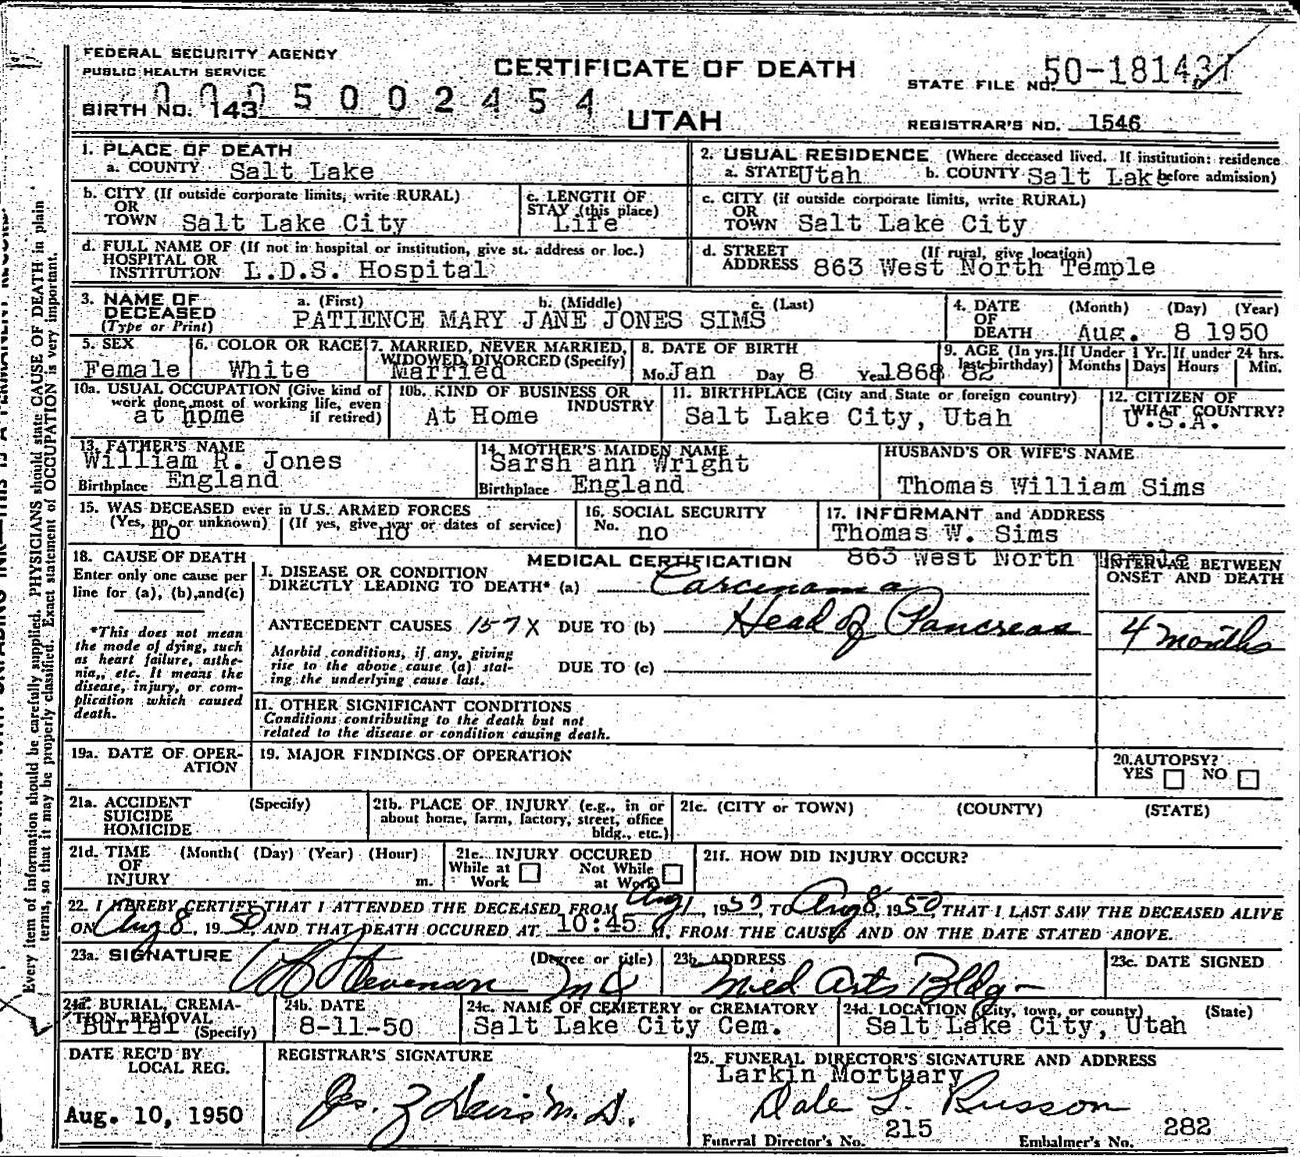 FEDERAL SECURITY AGENCY
PUBLIC HEALTH SERVICE
CERTIFICATE OF DEATH
STATE FILE NO. 50-181437
BIRTH NO. 143 0005002454
UTAH
REGISTRAR'S NO. 1546
1. PLACE OF DEATH
a. COUNTY Salt Lake
2. USUAL RESIDENCE (Where deceased lived. If institution: residence before admission)
a. STATE Utah b. COUNTY Salt Lake
b. CITY (If outside corporate limits, write RURAL)
OR
TOWN Salt Lake City
c. LENGTH OF
STAY (this place)
Life
c. CITY (if outside corporate limits, write RURAL)
OR
TOWN Salt Lake City
d. FULL NAME OF (If not in hospital or institution, give st. address or loc.)
HOSPITAL OR
INSTITUTION L.D.S. Hospital
d. STREET (If rural, give location)
ADDRESS 863 West North Temple
3. NAME OF
DECEASED
(Type or Print)
a. (First) b. (Middle) c. (Last)
PATIENCE MARY JANE JONES SIMS
4. DATE (Month) (Day) (Year)
OF
DEATH Aug. 8 1950
5. SEX
Female
6. COLOR OR RACE
White
7. MARRIED, NEVER MARRIED,
WIDOWED, DIVORCED (Specify)
Married
8. DATE OF BIRTH
Mo. Jan Day 8 Year 1868
9. AGE (In yrs. last birthday)
82
If Under 1 Yr.
Months Days
If under 24 hrs.
Hours Min.
10a. USUAL OCCUPATION (Give kind of
work done most of working life, even
if retired)
at home
10b. KIND OF BUSINESS OR
INDUSTRY
At Home
11. BIRTHPLACE (City and State or foreign country)
Salt Lake City, Utah
12. CITIZEN OF
WHAT COUNTRY?
U.S.A.
13. FATHER'S NAME
William R. Jones
Birthplace England
14. MOTHER'S MAIDEN NAME
Sarsh ann Wright
Birthplace England
HUSBAND'S OR WIFE'S NAME
Thomas William Sims
15. WAS DECEASED ever in U.S. ARMED FORCES
(Yes, no or unknown) (If yes, give war or dates of service)
no no
16. SOCIAL SECURITY
No. no
17. INFORMANT and ADDRESS
Thomas W. Sims
863 West North Temple
18. CAUSE OF DEATH
Enter only one cause per
line for (a), (b), and (c)
*This does not mean
the mode of dying, such
as heart failure, asthe-
nia,, etc. It means the
disease, injury, or com-
plication which caused
death.
MEDICAL CERTIFICATION
INTERVAL BETWEEN
ONSET AND DEATH
I. DISEASE OR CONDITION
DIRECTLY LEADING TO DEATH* (a) Carcinoma
ANTECEDENT CAUSES 157X DUE TO (b) Head of Pancreas
4 months
Morbid conditions, if any, giving
rise to the above cause (a) stat-
ing the underlying cause last.
DUE TO (c)
II. OTHER SIGNIFICANT CONDITIONS
Conditions contributing to the death but not
related to the disease or condition causing death.
19a. DATE OF OPER-
ATION
19. MAJOR FINDINGS OF OPERATION
20. AUTOPSY?
YES NO
21a. ACCIDENT (Specify)
SUICIDE
HOMICIDE
21b. PLACE OF INJURY (e.g., in or
about home, farm, factory, street, office
bldg., etc.)
21c. (CITY or TOWN) (COUNTY) (STATE)
21d. TIME (Month( (Day) (Year) (Hour)
OF
INJURY m.
21e. INJURY OCCURED
While at Work Not While at Work
21f. HOW DID INJURY OCCUR?
22. I HEREBY CERTIFY THAT I ATTENDED THE DECEASED FROM Aug 1, 1950, TO Aug 8, 1950, THAT I LAST SAW THE DECEASED ALIVE
ON Aug 8, 1950 AND THAT DEATH OCCURED AT 10:45 M, FROM THE CAUSES AND ON THE DATE STATED ABOVE.
23a. SIGNATURE (Degree or title)
Stevenson MD
23b. ADDRESS
Med Arts Bldg-
23c. DATE SIGNED
24a. BURIAL, CREMA-
TION, REMOVAL
Burial (Specify)
24b. DATE
8-11-50
24c. NAME OF CEMETERY or CREMATORY
Salt Lake City Cem.
24d. LOCATION (City, town, or county) (State)
Salt Lake City, Utah
DATE REC'D BY
LOCAL REG.
Aug. 10, 1950
REGISTRAR'S SIGNATURE
Davis M.D.
25. FUNERAL DIRECTOR'S SIGNATURE AND ADDRESS
Larkin Mortuary
Dale L. Russon
Funeral Director's No. 215 Embalmer's No. 282
Every item of information should be carefully supplied. PHYSICIANS should state CAUSE OF DEATH in plain
terms, so that it may be properly classified. Exact statement of OCCUPATION is very important.